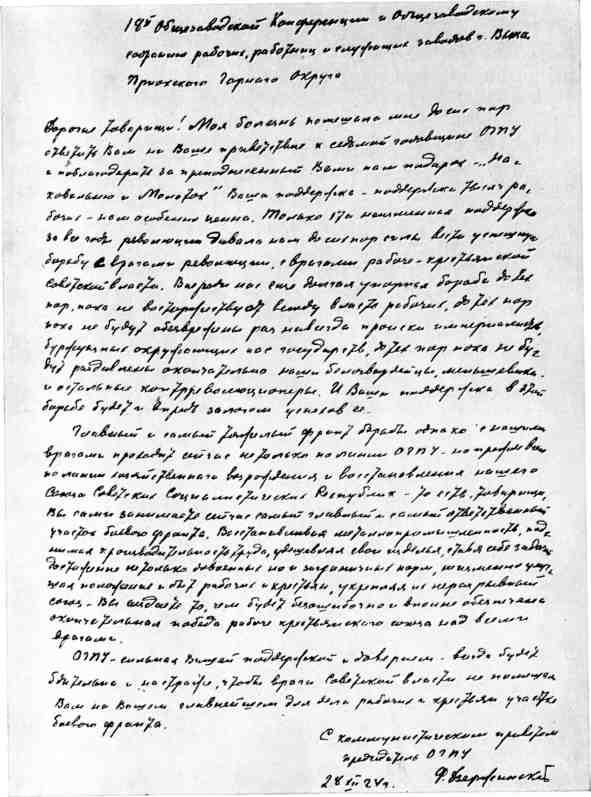 18й Общезаводской Конференции и Общезаводскому
собранию рабочих, работниц и служащих заводов г. Выкса
Приокского Горного Округа
Дорогие товарищи! Моя болезнь помешала мне до сих пор
ответить Вам на Ваше приветствие к седьмой годовщине ОГПУ
и поблагодарить за преподнесенный Вами нам подарок - "На-
ковальню и Молоток". Ваша поддержка - поддержка тысяч ра-
бочих - нам особенно ценна. Только эта неизменная поддержка
за все годы революции давала нам до сих пор силы вести успешную
борьбу с врагами революции, с врагами рабоче-крестьянской
советской власти. Впереди нас еще долгая упорная борьба до тех
пор, пока не восторжествует всюду власть рабочих, до тех пор
пока не будут обезврежены раз навсегда происки империалистов,
буржуазных окружающих нас государств, до тех пор пока не бу-
дут раздавлены окончательно наши белогвардейцы, меньшевики
и остальные контрреволюционеры. И Ваша поддержка в этой
борьбе будет и впредь залогом успехов ее.
Главный и самый тяжелый фронт борьбы однако с нашими
врагами проходит сейчас не только по линии ОГПУ - но прежде всего
по линии хозяйственного возрождения и восстановления нашего
Союза Советских Социалистических Республик - то есть, товарищи,
Вы сами занимаете сейчас самый главный и самый ответственный
участок боевого фронта. Восстанавливая металлопромышленность, под-
нимая производительность труда, удешевляя свои изделья, ставя себе задачу
достижение не только довоенных но и заграничных норм, неизменно улуч-
шая положение и быт рабочих и крестьян, укрепляя их неразрывный
союз - Вы создаете то, чем будет безошибочно и вполне обеспечена
окончательная победа рабоче крестьянского союза над всеми
врагами.
ОГПУ - сильная Вашей поддержкой и доверием - всегда будет
бдительна и настороже, чтобы враги Советской власти не помешали
Вам на Вашем главнейшем для дела рабочих и крестьян участке
боевого фронта.
С коммунистическим приветом
председатель ОГПУ
28 XII 24 г. Ф. Дзержинский